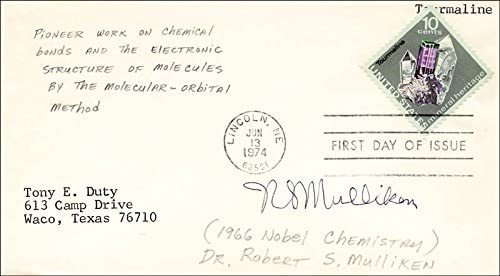 Tourmaline
PIONEER WORK ON CHEMICAL
BONDS AND THE ELECTRONIC
STRUCTURE OF MOLECULES
BY THE MOLECULAR-ORBITAL
METHOD
10
cents
Tourmaline
UNITED STATES
mineral heritage
LINCOLN, NE
JUN
13
1974
68501
FIRST DAY OF ISSUE
Tony E. Duty
613 Camp Drive
Waco, Texas 76710
RSMulliken
(1966 NOBEL CHEMISTRY)
DR. ROBERT S. MULLIKEN